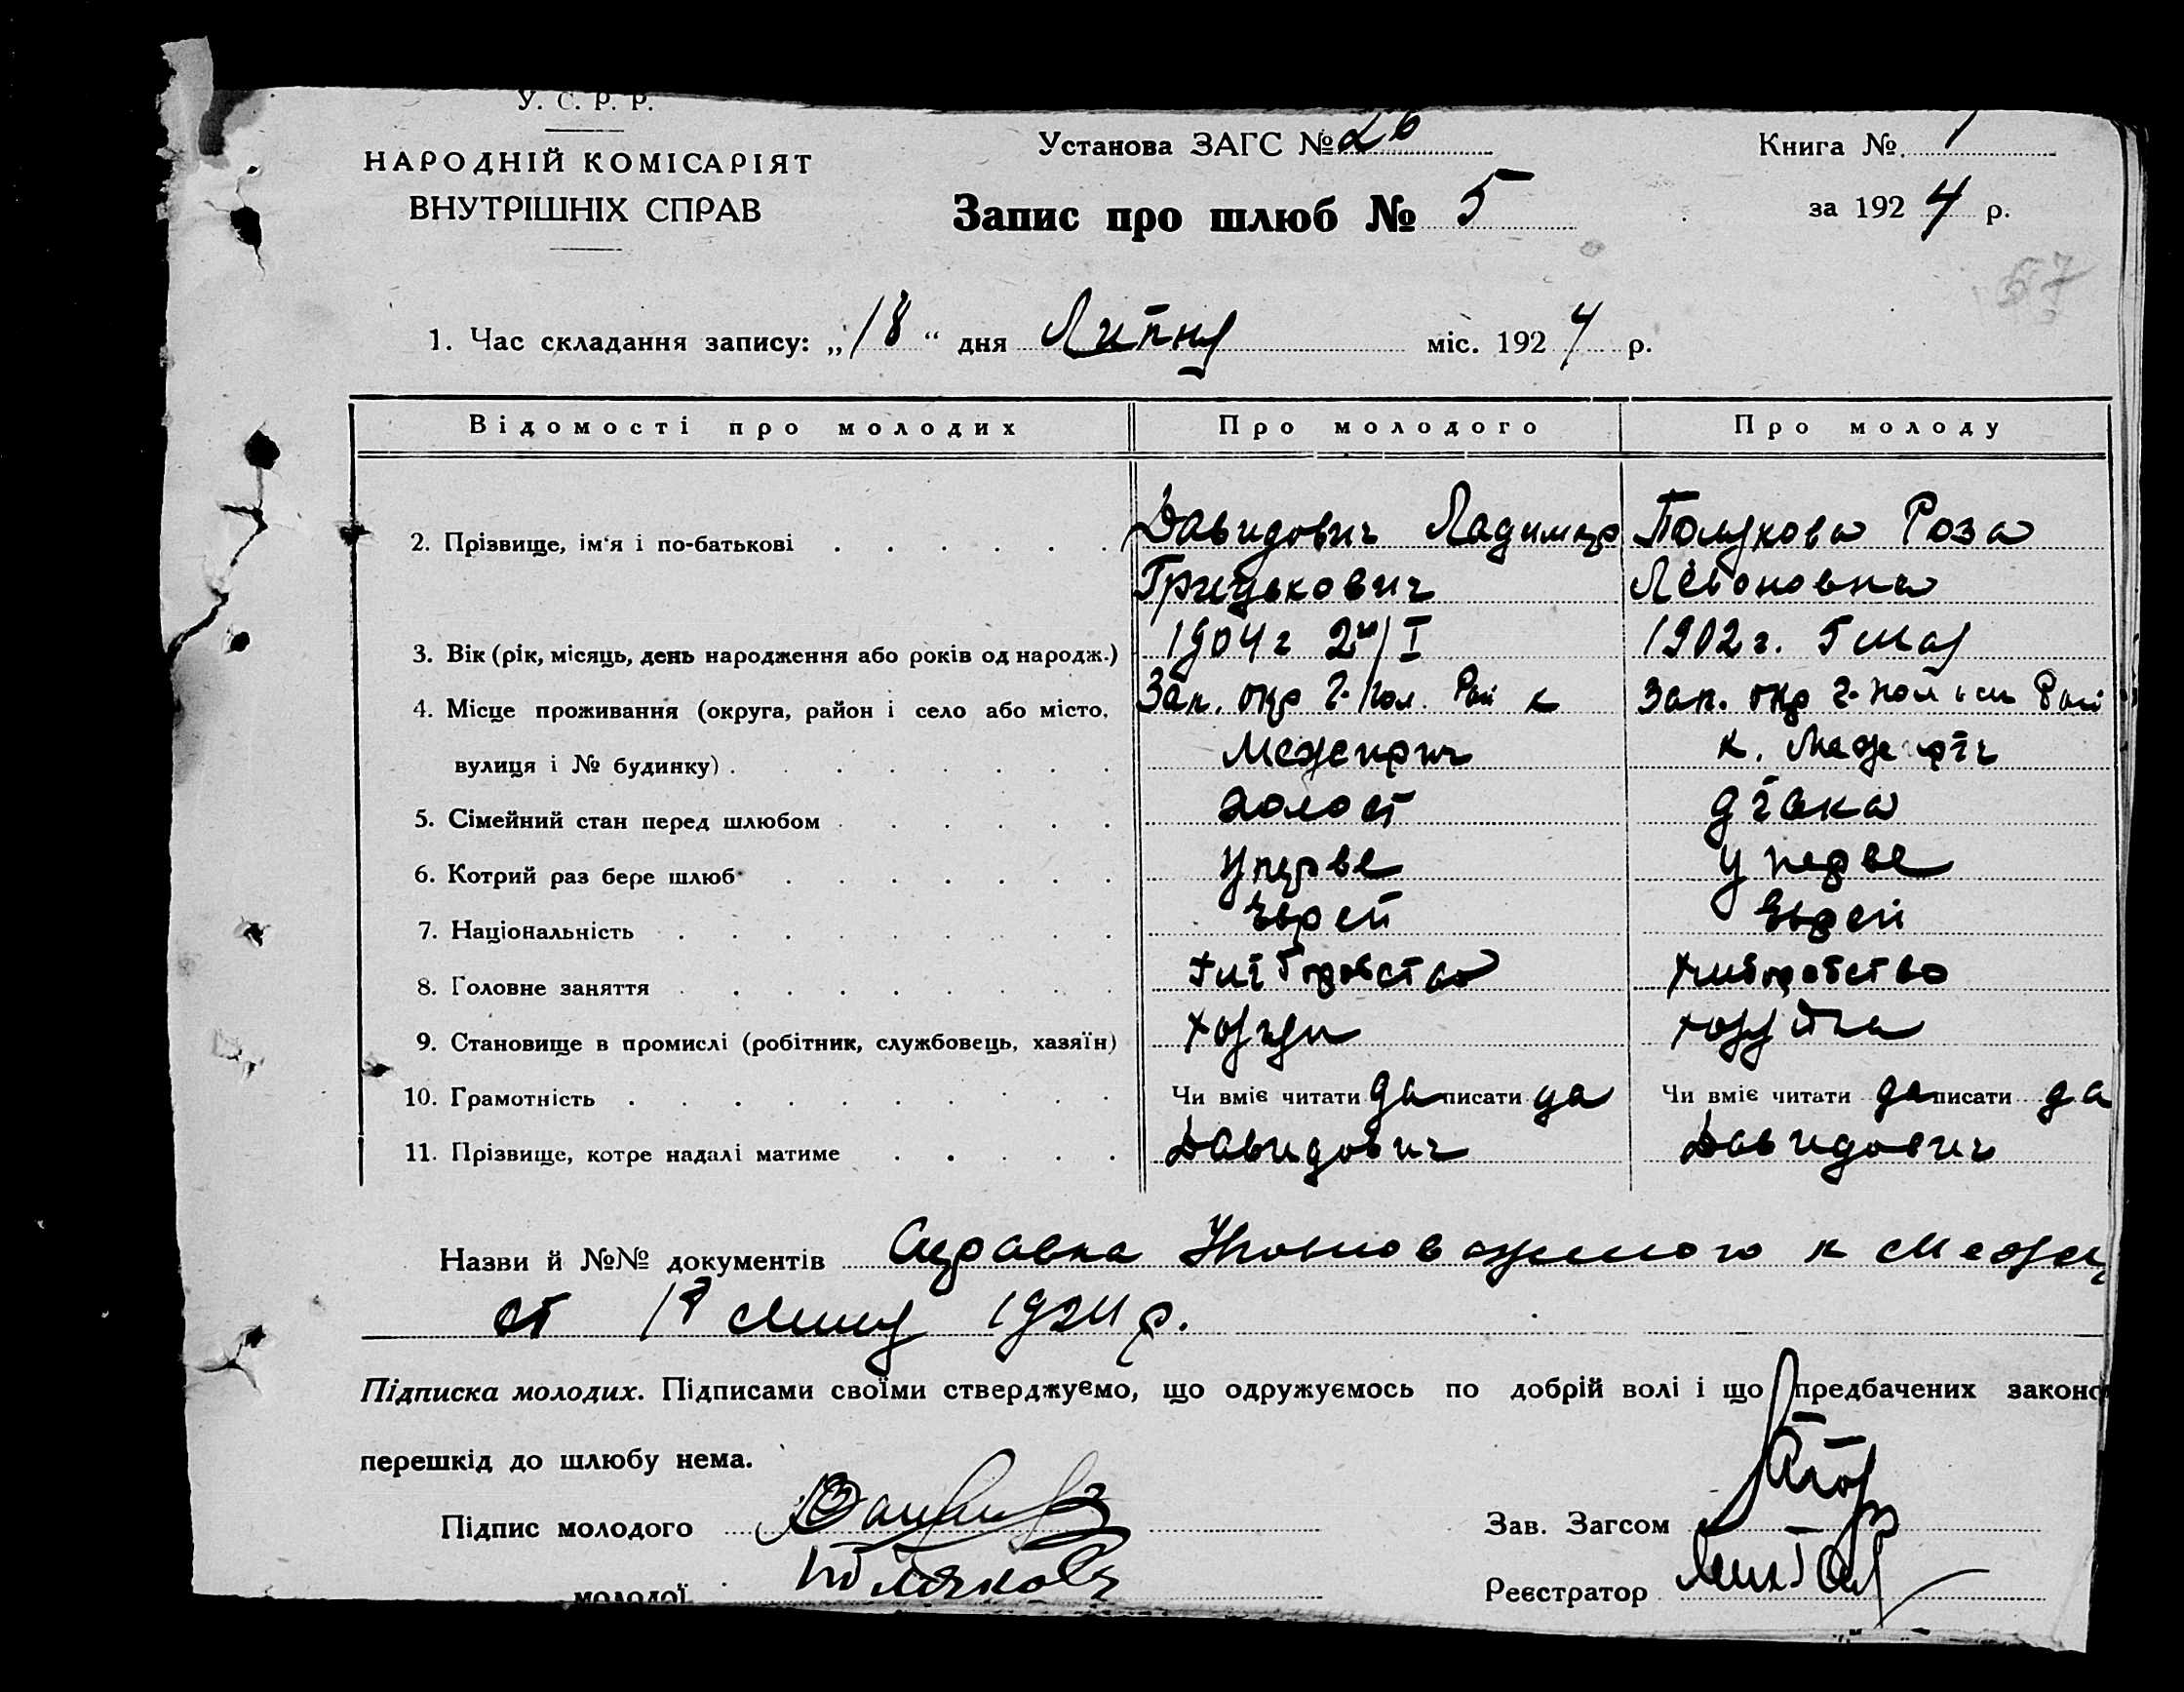 У. С. Р. Р.
НАРОДНІЙ КОМІСАРІЯТ
ВНУТРІШНІХ СПРАВ
Установа ЗАГС № 26
Запис про шлюб № 5
Книга № 1
за 1924 р.
57
1. Час складання запису: „18“ дня Липня міс. 1924 р.
Відомості про молодих Про молодого Про молоду
2. Прізвище, ім'я і по-батькові Давидович Ладимир Полякова Роза
Грицькович Лєвоновна
3. Вік (рік, місяць, день народження або років од народж.) 1904 г 1902 г.
4. Місце проживання (округа, район і село або місто, Зап. окр Рай к Зап. окр Рай
вулиця і № будинку) Межирич к. Межиріч
5. Сімейний стан перед шлюбом холост дівка
6. Котрий раз бере шлюб уперве у перве
7. Національність Еврей Еврей
8. Головне заняття хліборобство хліборобство
9. Становище в промислі (робітник, службовець, хазяїн)
10. Грамотність Чи вміє читати да писати да Чи вміє читати да писати да
11. Прізвище, котре надалі матиме Давидович Давидович
Назви й №№ документів Справка Уповноваженого к
от 18 1924 р.
Підписка молодих. Підписами своїми стверджуємо, що одружуємось по добрій волі і що предбачених законо
перешкід до шлюбу нема.
Підпис молодого
Зав. Загсом
молодої Полякова
Реєстратор